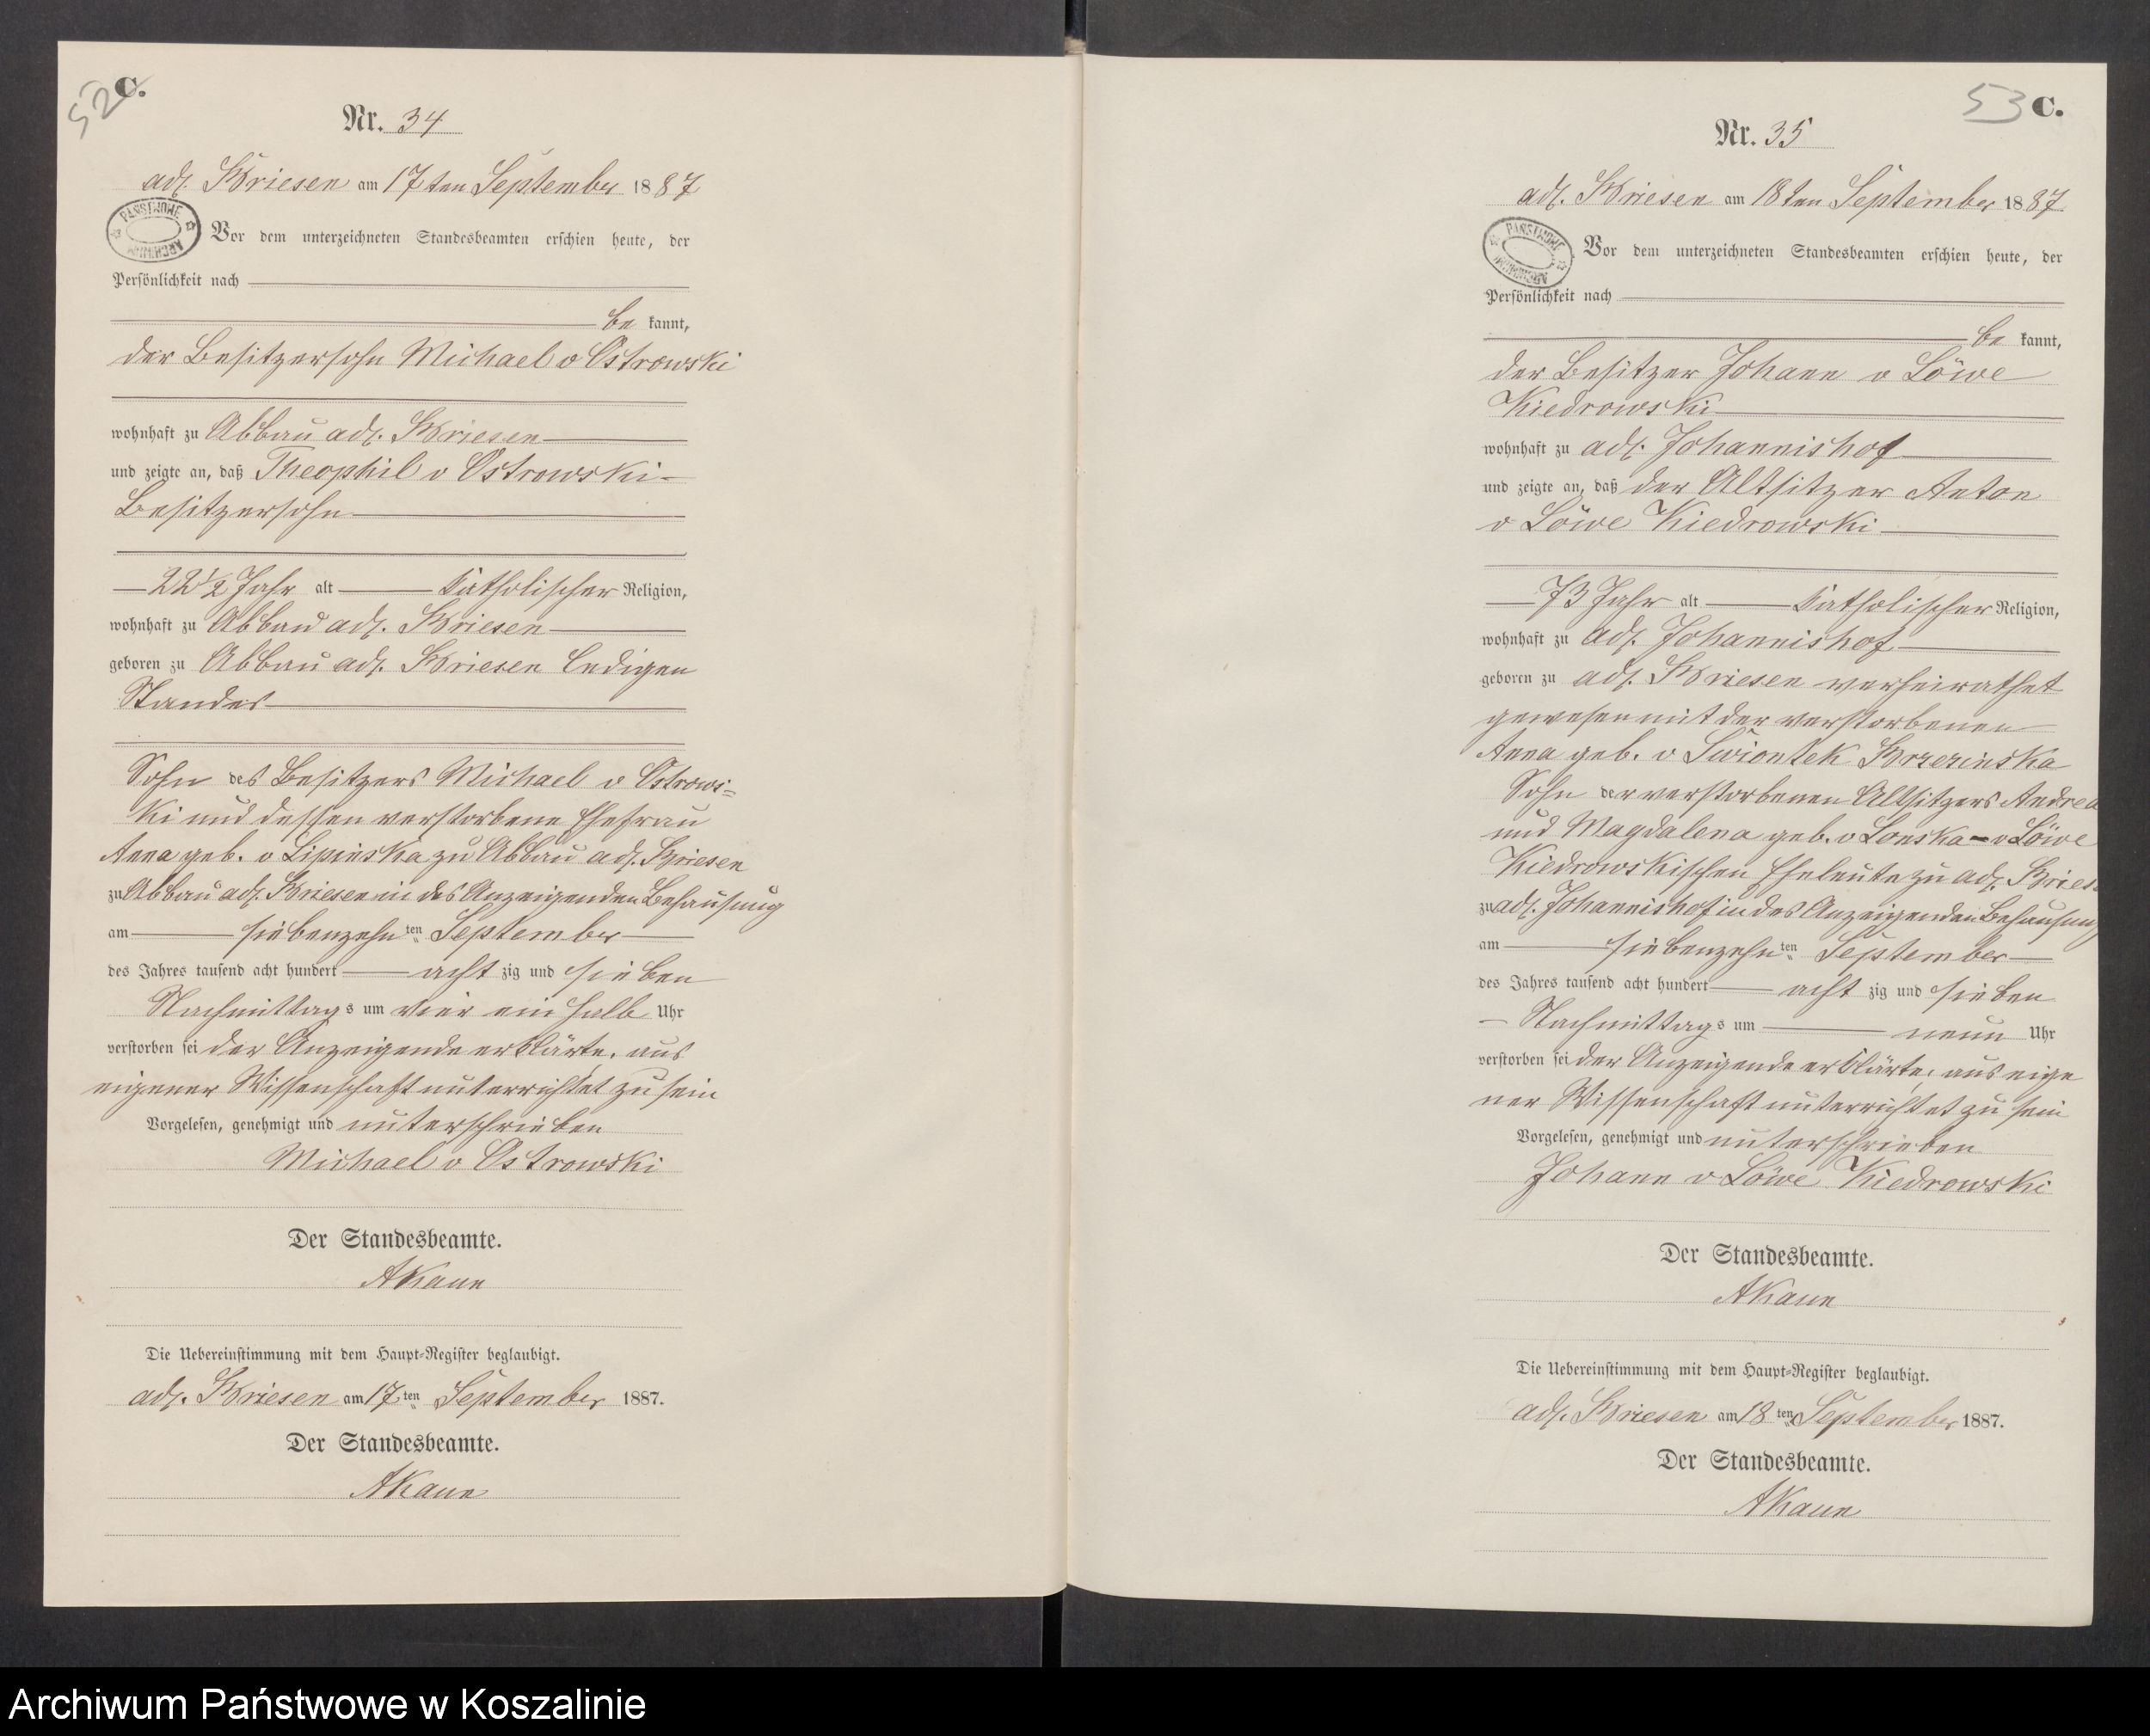 52
C.
Nr. 34
adl. Briesen am 17ten September 1887
PAŃSTWOWE ARCHIWUM
Vor dem unterzeichneten Standesbeamten erschien heute, der
Persönlichkeit nach
be kannt,
der Besitzersohn Michael v Ostrowski
wohnhaft zu Abbau adl. Briesen
und zeigte an, daß Theophil v Ostrowski
Besitzersohn
22 1/2 Jahr alt katholischer Religion,
wohnhaft zu Abbau adl. Briesen
geboren zu Abbau adl. Briesen ledigen
Standes
Sohn des Besitzers Michael v Ostrows=
ki und dessen verstorbene Ehefrau
Anna geb. v Lipinska zu Abbau adl. Briesen
zu Abbau adl. Briesen in des Anzeigenden Behausung
am siebenzehnten September
des Jahres tausend acht hundert acht zig und sieben
Nachmittags um vier ein halb Uhr
verstorben sei der Anzeigende erklärte, aus
eigener Wissenschaft unterrichtet zu sein
Vorgelesen, genehmigt und unterschrieben
Michael v Ostrowski
Der Standesbeamte.
AKaun
Die Uebereinstimmung mit dem Haupt-Register beglaubigt.
adl. Briesen am 17ten September 1887.
Der Standesbeamte.
AKaun
53 C.
Nr. 35
adl. Briesen am 18ten September 1887
PAŃSTWOWE ARCHIWUM
Vor dem unterzeichneten Standesbeamten erschien heute, der
Persönlichkeit nach
be kannt,
der Besitzer Johann v Löwe
Kiedrowski
wohnhaft zu adl. Johannishof
und zeigte an, daß der Altsitzer Anton
v Löwe Kiedrowski
73 Jahr alt katholischer Religion,
wohnhaft zu adl. Johannishof
geboren zu adl. Briesen verheirathet
gewesen mit der verstorbenen
Anna geb. v Swiontek Brzezinska
Sohn der verstorbenen Altsitzers Andrea
und Magdalena geb. v Lonska - v Löwe
Kiedrowskischen Eheleute zu adl. Bries
zu adl. Johannishof in des Anzeigenden Behausung
am siebenzehnten September
des Jahres tausend acht hundert acht zig und sieben
Nachmittags um neun Uhr
verstorben sei der Anzeigende erklärte, aus eige
ner Wissenschaft unterrichtet zu sein
Vorgelesen, genehmigt und unterschrieben
Johann v Löwe Kiedrowski
Der Standesbeamte.
AKaun
Die Uebereinstimmung mit dem Haupt-Register beglaubigt.
adl. Briesen am 18ten September 1887.
Der Standesbeamte.
AKaun
Archiwum Państwowe w Koszalinie